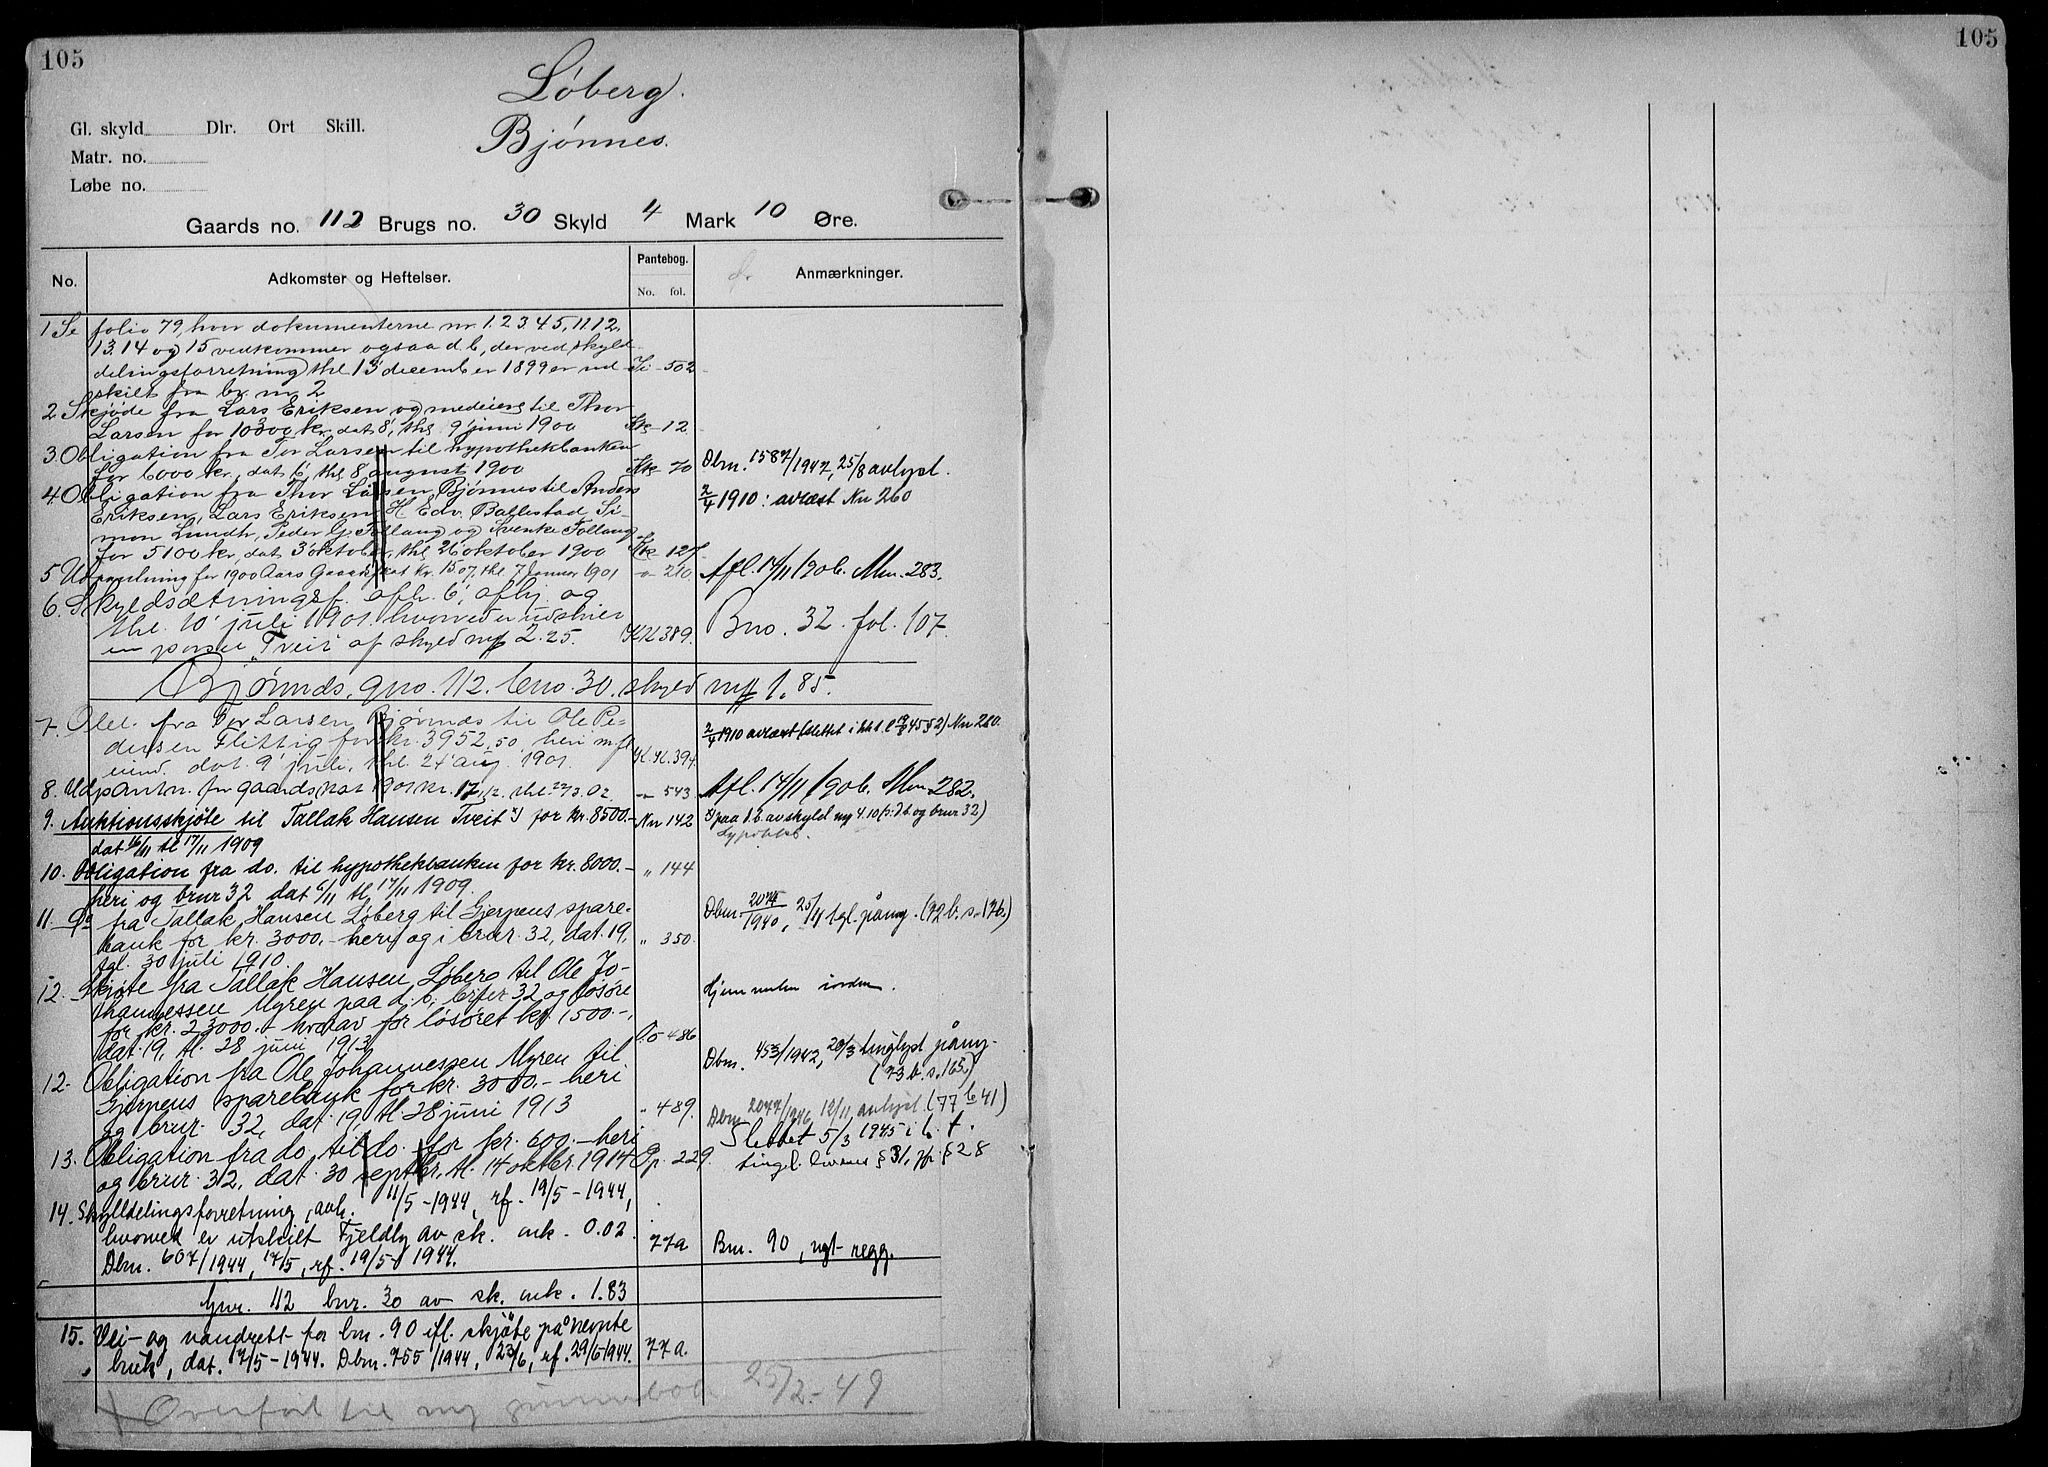 105
105
Løberg.
Bjønnes.
Gl. skyld Dlr. Ort Skill.
Matr. no.
Løbe no.
Gaards no. 112 Brugs no. 30 Skyld 4 Mark 10 Øre.
No. Adkomster og Heftelser. Pantebog. No. fol. Anmærkninger.
1 Se folio 79, hvor dokumenterne nr. 1. 2 3. 4 5, 11. 12,
13. 14 og 15 vedkommer ogsaa d. b, der ved skyld-
delingsforretning thl 13 december 1899 er ud- Ii - 502
skilt fra br. nr 2
2 Skjøde fra Lars Eriksen og medeiere til Thor
Larsen for 10300 kr. dat 8', thl 9' juni 1900 Kk - 12
3 Obligation fra Tor Larsen til hypothekbanken
for 6000 kr, dat 6, thl 8 august 1900 Kk - 70 Dbnr. 1587/1947, 25/8 avlyst.
4 Obligation fra Thor Larsen Bjønnes til Anders 2/4 1910: avlæst Nn 260
Eriksen, Lars Eriksen, H Edv. Ballestad, Si-
mon Lundh, Peder G. Follaug og Svenke Follaug
for 5100 kr, dat 3' oktober, thl 26' oktober 1900 Kk - 127
5 Udpantning for 1900 Aars Gaardskat kr. 15.07, thl 7 Januar 1901 " 210 Afl. 14/11 1906. Mm. 283.
6. Skyldsætningsf. afh. 6', afhj. og
thl. 10' juli 1901 hvorved er udskier
en parsel "Tveit" af skyld mk 2.25. Kk 389. Bno. 32. fol. 107.
Bjønnds, gno. 112. bno. 30. skyld mk 1.85.
7. Obl. fra Tor Larsen Bjønnds til Ole Pe-
dersen Flittig for kr. 3952.50, heri m fl
eiend. dat. 9' juli, thl. 24' aug. 1901. Kk. 394.
8. Udpantn. for gaardskat 1901 kr. 17 - 543 Afl. 14/11 1906. Mm 282.
9. Auktionsskjøte til Tallak Hansen Tveit x) for kr. 8500.- Nn 142
dat 16/11 tl 17/11 1909
10. Obligation fra do. til hypothekbanken for kr. 8000.- " 144
heri og brnr 32 dat 6/11 tl. 17/11 1909.
11. Do fra Tallak Hansen Løberg til Gjerpens spare- Dbnr 2074/1940, 25/11 tgl. påny. (72 b. s. 176.)
bank for kr. 3000.- heri og i brnr. 32, dat. 19, " 350.
tgl. 30 juli 1910.
12. Skjøte fra Tallak Hansen Løberg til Ole Jo- Hjemmelen iorden.
hannessen Myren paa d. b, brnr 32 og løsøre
for kr. 23000.- hvorav for løsøret kr 1500.-,
dat. 19, tl. 28 juni 1913 Oo 486
12. Obligation fra Ole Johannessen Myren til Dbnr. 453/1942, 20/3 tinglyst påny-
(73 b. s. 165.)
Gjerpens sparebank for kr. 3000.- heri
og brnr. 32, dat. 19, tl 28 juni 1913 " 489. Dbnr 2077/1946 12/11, avlyst. (77 b 41)
13. Obligation fra do. til do. for kr. 600.- heri Slettet 5/3 1945 i h. t.
og brnr. 32, dat. 30 septbr. tl. 14 oktbr. 1914 Pp. 229. tingl. lovens § 31, jfr. § 28
14. Skylddelingsforretning, avh. 11/5 - 1944, rf. 19/5 - 1944,
hvorved er utskilt Fjeldly av sk. mk. 0.02. 77a Bnr. 90, nyt regg.
Dbnr. 607/1944, 17/5, rf. 19/5 1944.
Gnr. 112 bnr. 30 av sk. mk. 1.83
15. Vei- og vandrett for bnr. 90 ifl. skjøte på nevnte
bruk, dat. 7/5 - 1944. Dbnr. 755/1944, 23/6, rf. 29/6 1944. 77a.
Overført til ny grunnbok 25/2 - 49